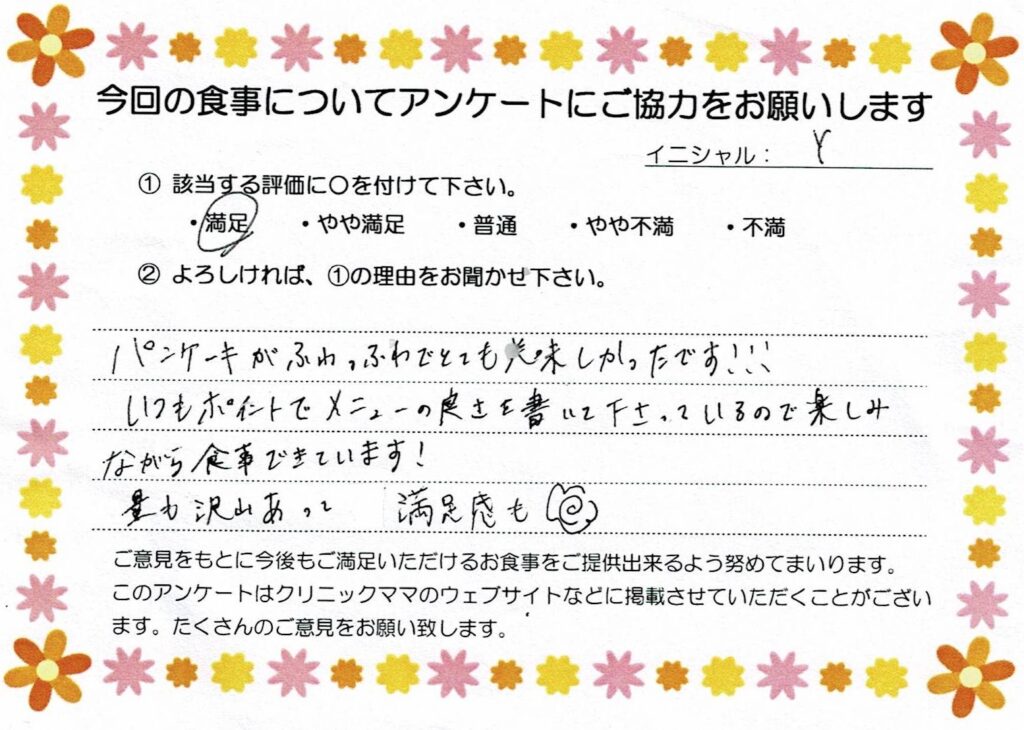 今回の食事についてアンケートにご協力をお願いします
イニシャル： Y
① 該当する評価に○を付けて下さい。
・満足 ・やや満足 ・普通 ・やや不満 ・不満
② よろしければ、①の理由をお聞かせ下さい。
パンケーキがふわっふわでとても美味しかったです!!!
いつもポイントでメニューの良さを書いて下さっているので楽しみ
ながら食事できています!
量も沢山あって 満足感も
ご意見をもとに今後もご満足いただけるお食事をご提供出来るよう努めてまいります。
このアンケートはクリニックママのウェブサイトなどに掲載させていただくことがござい
ます。たくさんのご意見をお願い致します。